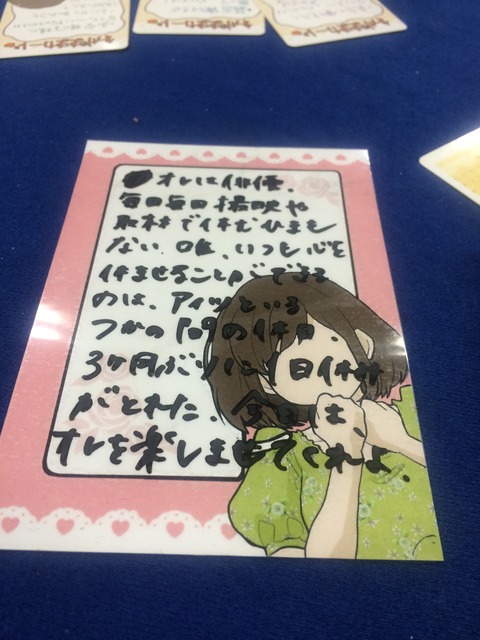 オレは俳優.
毎日毎日撮映や
取材で休むひまも
ない. 唯、いつも心を
休ませることができる
のは、アイツといる
つかの間の休日.
3ヶ月ぶりに1日休み
がとれた. 今日は、
オレを楽しませてくれよ.